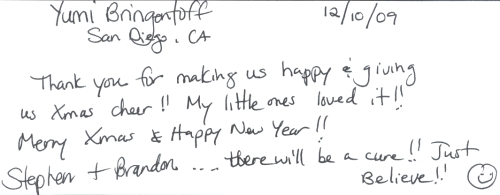 Yumi Bringentoff 12/10/09
San Diego, CA
Thank you for making us happy & giving
us Xmas cheer!! My little ones loved it!!
Merry Xmas & Happy New Year!!
Stephen + Brandon .... there will be a cure!! Just
Believe!!